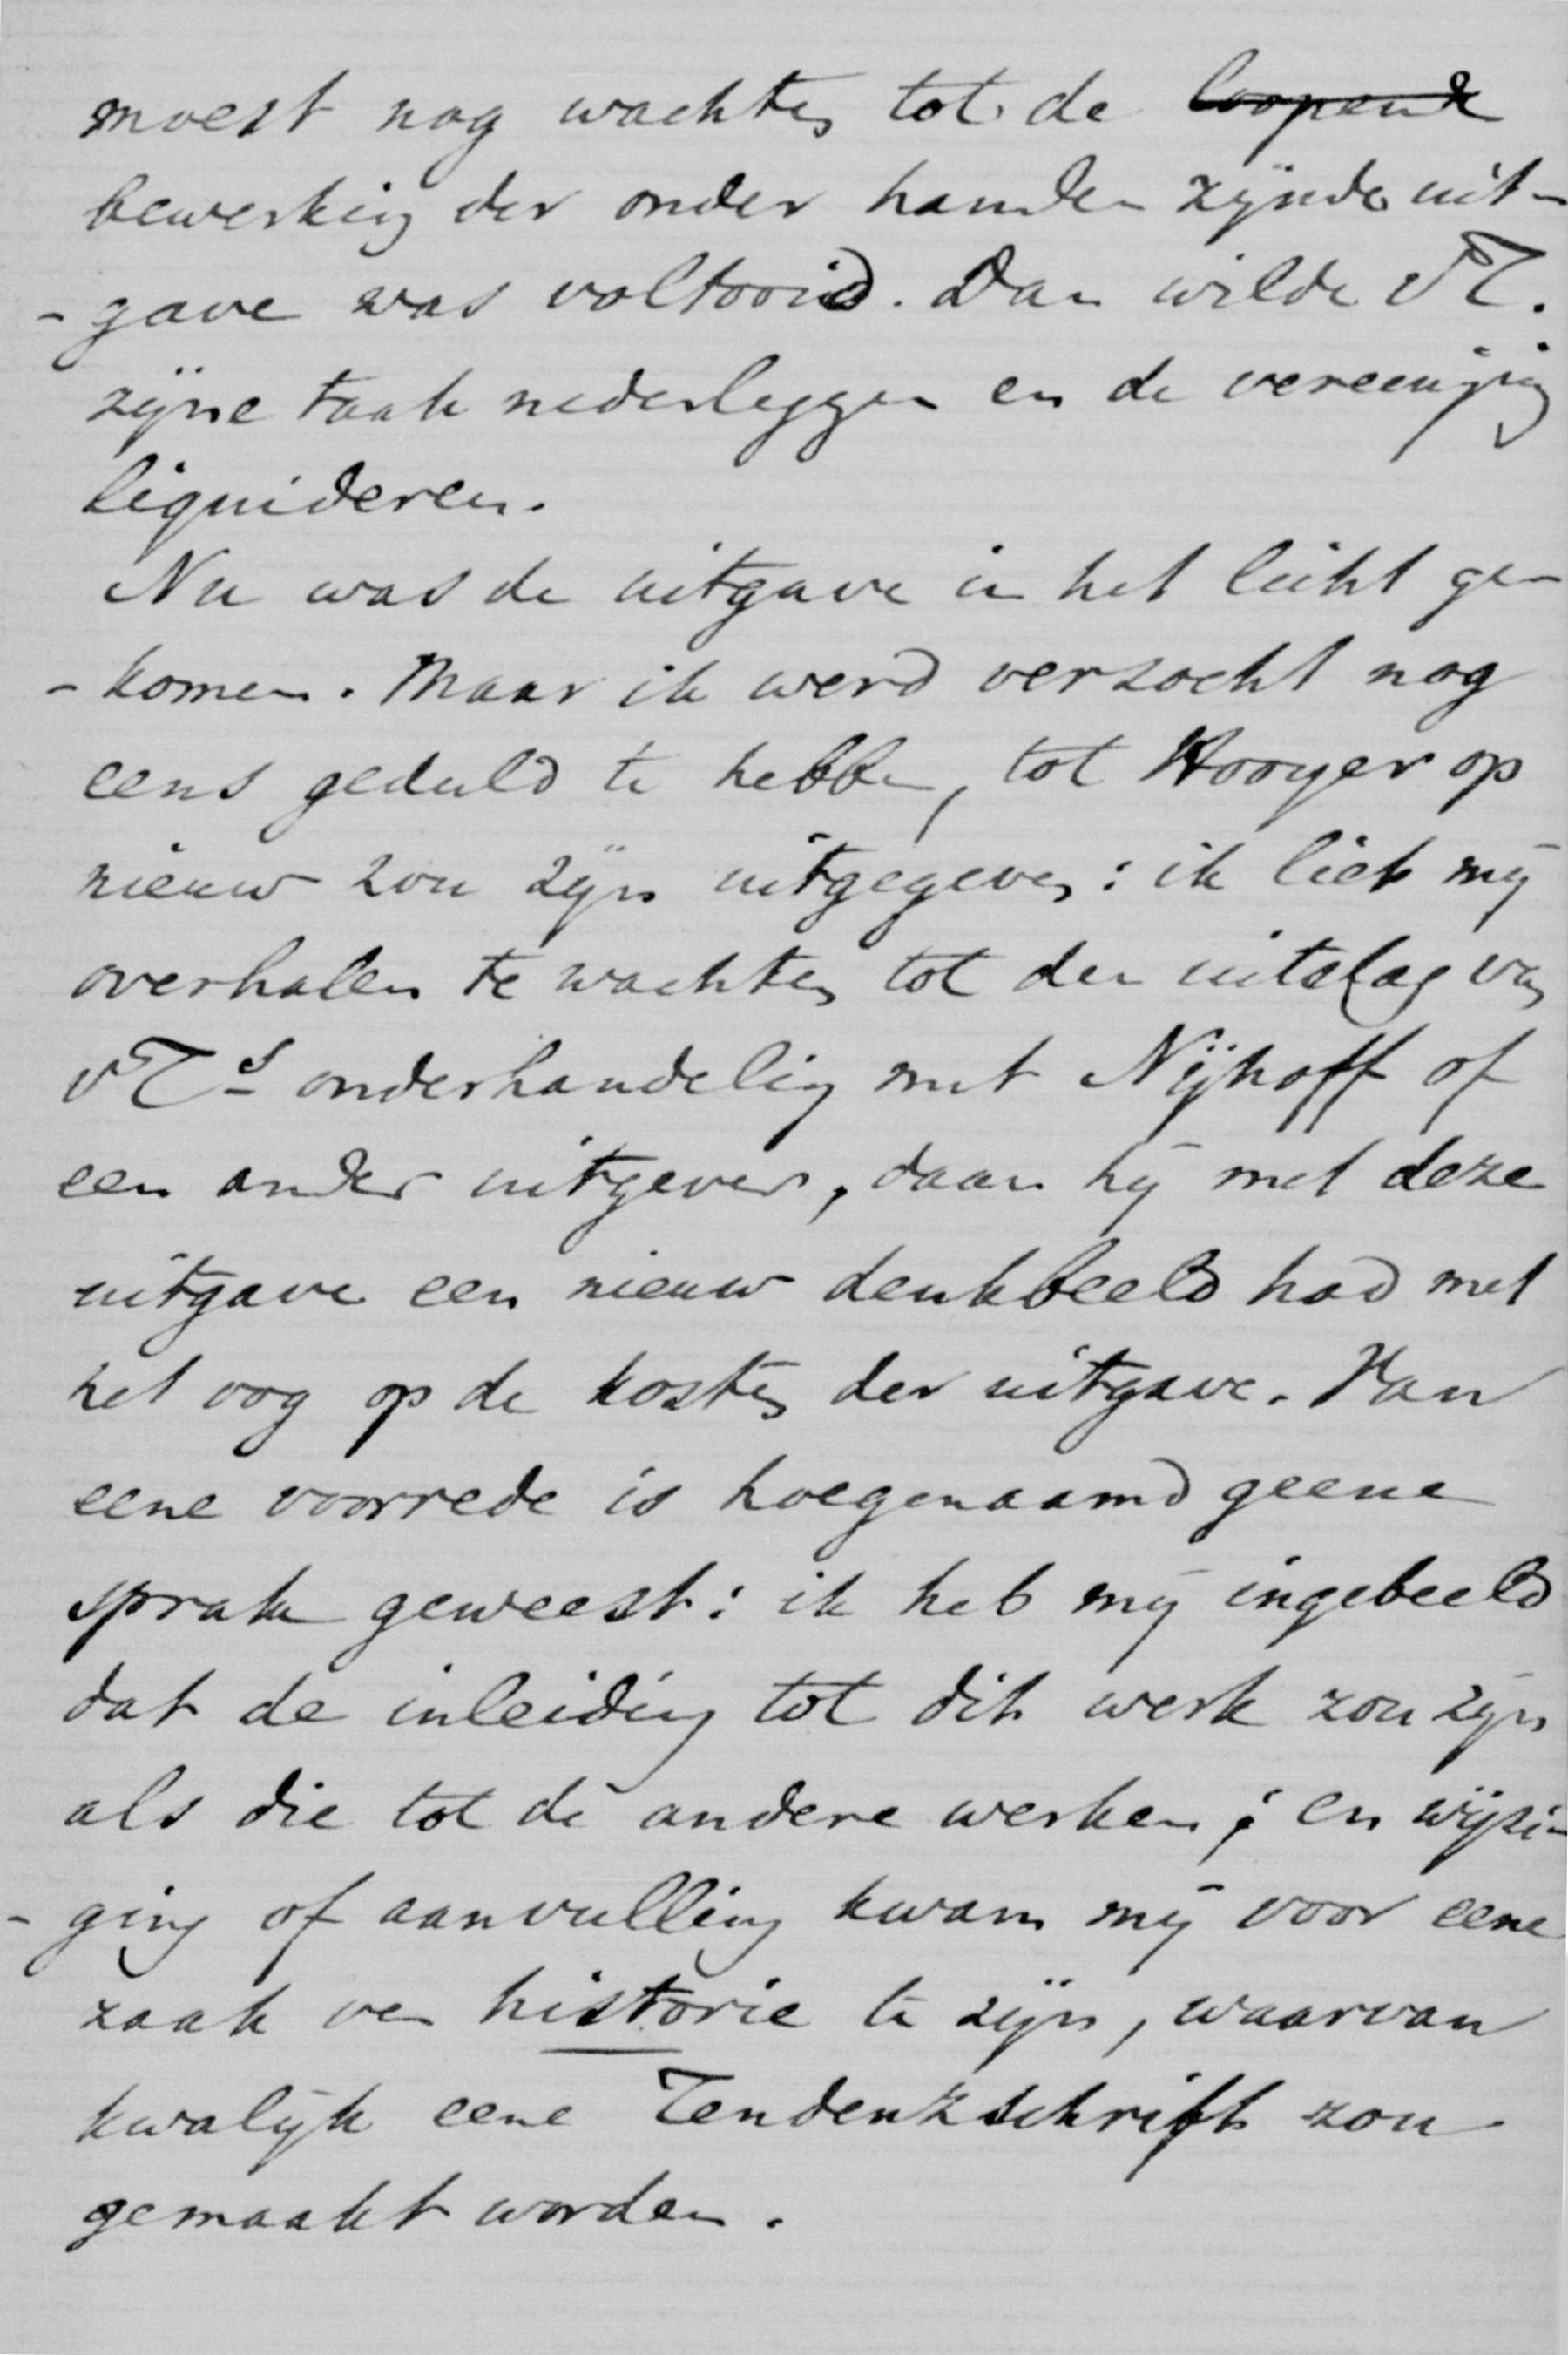 moest nog wachten tot de loopende
bewerking der onder handen zijnde uit-
-gave was voltooid. Dan wilde VT.
zijne taak nederleggen en de vereeniging
liquideren.
Nu was de uitgave in het licht ge-
-komen. Maar ik werd verzocht nog
eens geduld te hebben, tot Hooyer op
nieuw zou zijn uitgegeven: ik liet mij
overhalen te wachten tot den uitslag van
VTs onderhandeling met Nijhoff of
een ander uitgever, daar hij met deze
uitgave een nieuw denkbeeld had met
het oog op de kosten der uitgave. Van
eene voorrede is hoegenaamd geene
sprake geweest: ik heb mij ingebeeld
dat de inleiding tot dit werk zou zijn
als die tot de andere werken; en wijzi-
-ging of aanvulling kwam mij voor eene
zaak van historie te zijn, waarvan
kwalijk eene Tendenzschrift zou
gemaakt worden.